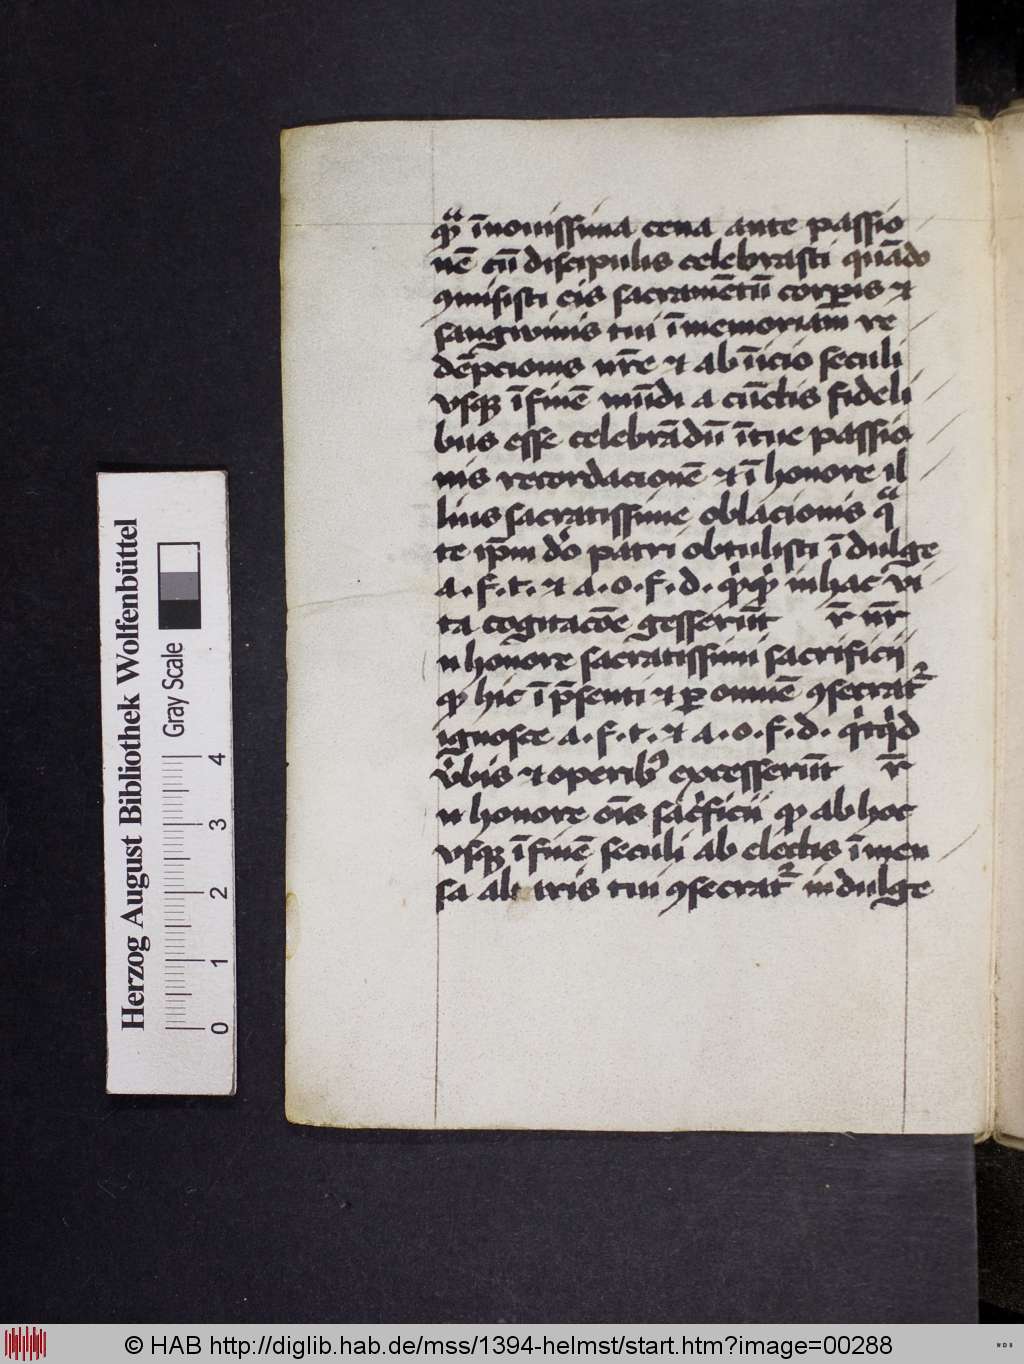 qͣ īnouissima cena ante passio
nē cū discipulis celebrasti quādo
ꝯmisisti eis sacramētū corꝑis ⁊
sangwinis tui ī memoriam̄ re
dēpcionis nr̄e ⁊ ab īicio seculi
vsqꝫ ī finē mūdi a cūctis fideli
bus esse celebrādū ī tue passio
nis recordacionē ⁊ ī honore il
lius sacratissime oblacionis qͣ
te ip̄m dō patri obtulisti īdulge
a. f. t. ⁊ a. o. f. d. in hac vi
ta cogitacōe gesserūt r̄ nr̄
n honore sacratissimi sacrificii
ꝙ hic ī p̄senti ⁊ ꝑ omnē ꝯsecrat᷑
ignosce a. f. t. ⁊ a. o. f. d. qͥcqͥd
v̄bis ⁊ operibꝰ excesserūt r̄
n honore oīs sacͥficii ꝙ ab hoc
vsqꝫ ī finē seculi ab electis ī men
sa altaris tui ꝯsecrat᷑ indulge
Herzog August Bibliothek Wolfenbüttel
Gray Scale
0 1 2 3 4
© HAB http://diglib.hab.de/mss/1394-helmst/start.htm?image=00288